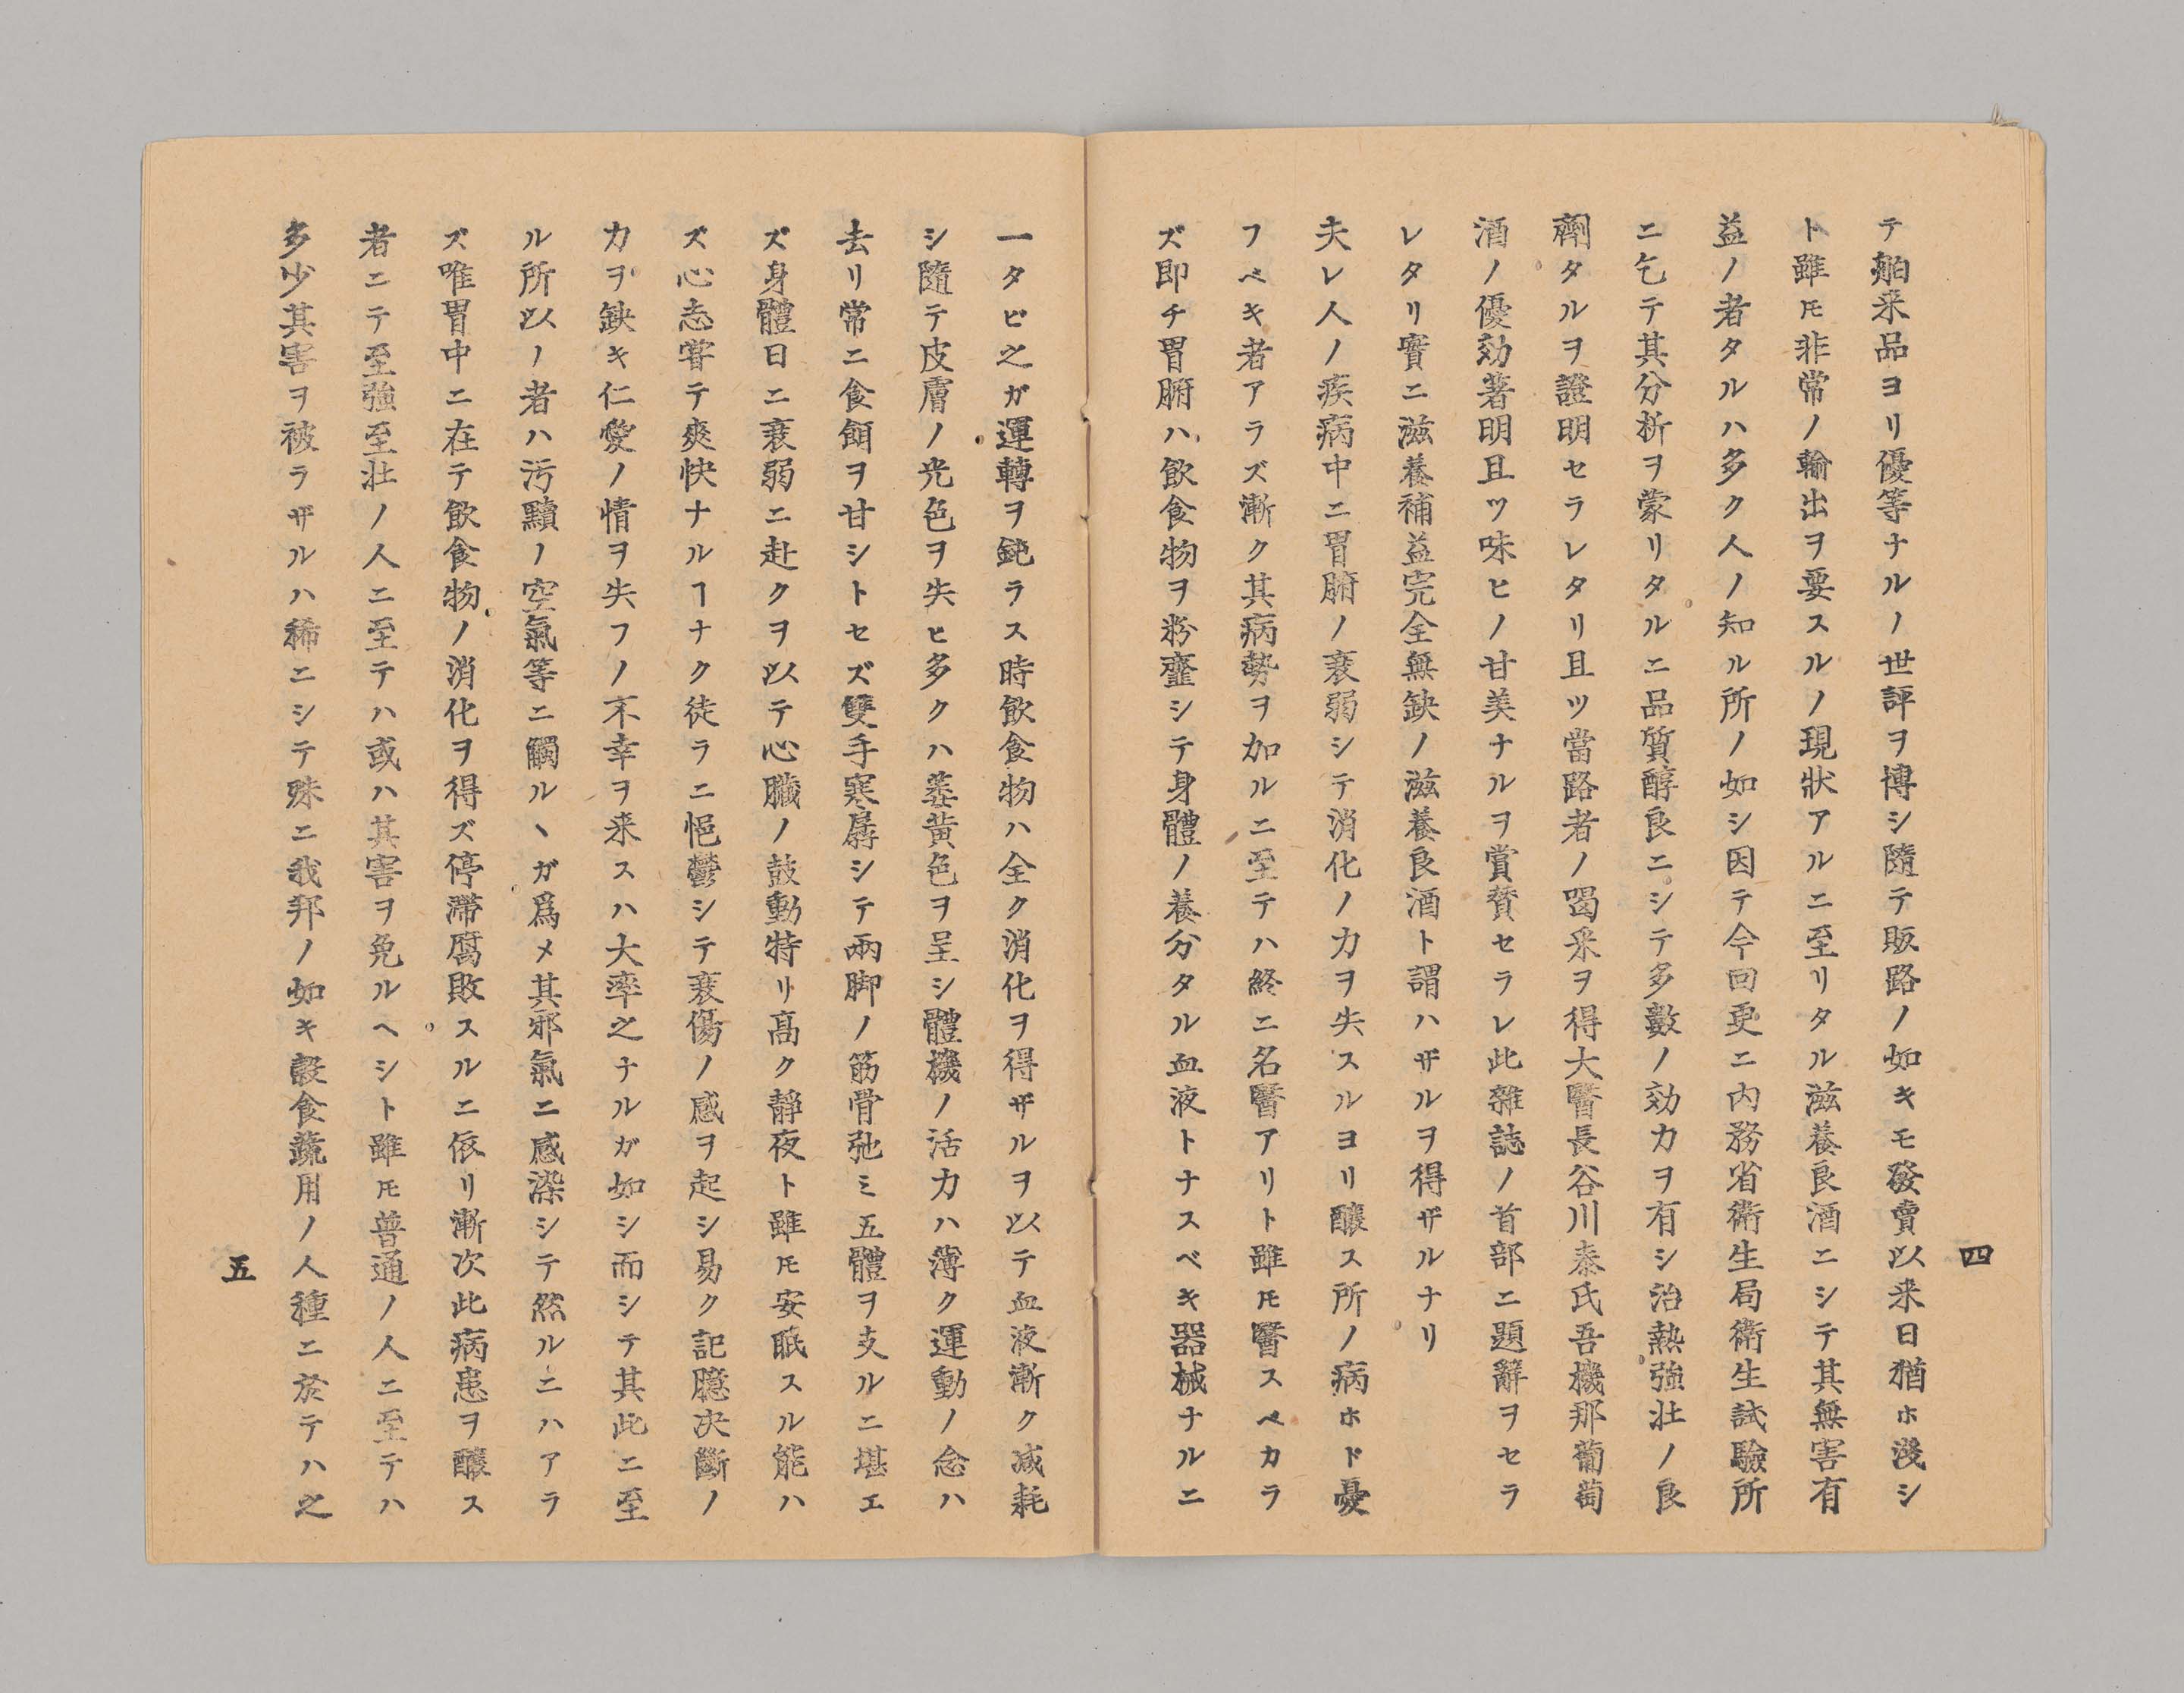 四
テ舶来品ヨリ優等ナルノ世評ヲ博シ隨テ販路ノ如キモ發賣以来日猶ホ淺シ
ト雖𪜈非常ノ輸出ヲ要スルノ現狀アルニ至リタル滋養良酒ニシテ其無害有
益ノ者タルハ多ク人ノ知ル所ノ如シ因テ今回更ニ内務省衛生局衛生試驗所
ニ乞テ其分析ヲ蒙リタルニ品質醇良ニシテ多數ノ効力ヲ有シ治熱強壯ノ良
劑タルヲ證明セラレタリ且ツ當路者ノ喝采ヲ得大醫長谷川泰氏吾機那葡萄
酒ノ優効著明且ツ味ヒノ甘美ナルヲ賞賛セラレ此雜誌ノ首部ニ題辭ヲセラ
レタリ實ニ滋養補益完全無缺ノ滋養良酒ト謂ハザルヲ得ザルナリ
夫レ人ノ疾病中ニ胃腑ノ衰弱シテ消化ノ力ヲ失スルヨリ釀ス所ノ病ホド憂
フベキ者アラズ漸ク其病勢ヲ加ルニ至テハ終ニ名醫アリト雖𪜈醫スベカラ
ズ即チ胃腑ハ飲食物ヲ粉虀シテ身體ノ養分タル血液トナスベキ器械ナルニ
一タビ之ガ運轉ヲ鈍ラス時飲食物ハ全ク消化ヲ得ザルヲ以テ血液漸ク减耗
シ隨テ皮膚ノ光色ヲ失ヒ多クハ萎黄色ヲ呈シ體機ノ活力ハ薄ク運動ノ念ハ
去リ常ニ食餌ヲ甘シトセズ雙手寒孱シテ兩脚ノ筋骨弛ミ五體ヲ支ルニ堪エ
ズ身體日ニ衰弱ニ赴クヲ以テ心臟ノ鼓動特リ高ク靜夜ト雖𪜈安眠スル能ハ
ズ心志甞テ爽快ナルヿナク徒ラニ悒鬱シテ衰傷ノ感ヲ起シ易ク記臆决斷ノ
力ヲ缺キ仁愛ノ情ヲ失フノ不幸ヲ来スハ大率之ナルガ如シ而シテ其此ニ至
ル所以ノ者ハ汚黷ノ空氣等ニ觸ルヽガ爲メ其邪氣ニ感染シテ然ルニハアラ
ズ唯胃中ニ在テ飲食物ノ消化ヲ得ズ停滯腐敗スルニ依リ漸次此病患ヲ釀ス
者ニテ至強至壯ノ人ニ至テハ或ハ其害ヲ免ルヘシト雖𪜈普通ノ人ニ至テハ
多少其害ヲ被ラザルハ稀ニシテ殊ニ我邦ノ如キ穀食蔬用ノ人種ニ於テハ之
五